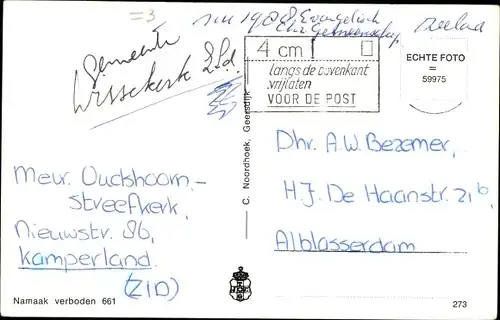 =3
in 1988 Evangelisch
Chr. Gemeenschap
Zeeland
Gemeente
Wissekerk Zld.
4 cm
langs de bovenkant
vrijlaten
VOOR DE POST
ECHTE FOTO
=
59975
Mevr. Oudshoorn-
Streefkerk,
Nieuwstr. 86,
Kamperland.
(ZLD)
C. Noordhoek, Geersdijk
Dhr. A.W. Bezemer,
H.J. De Haanstr. 21b,
Alblasserdam
Namaak verboden 661
273